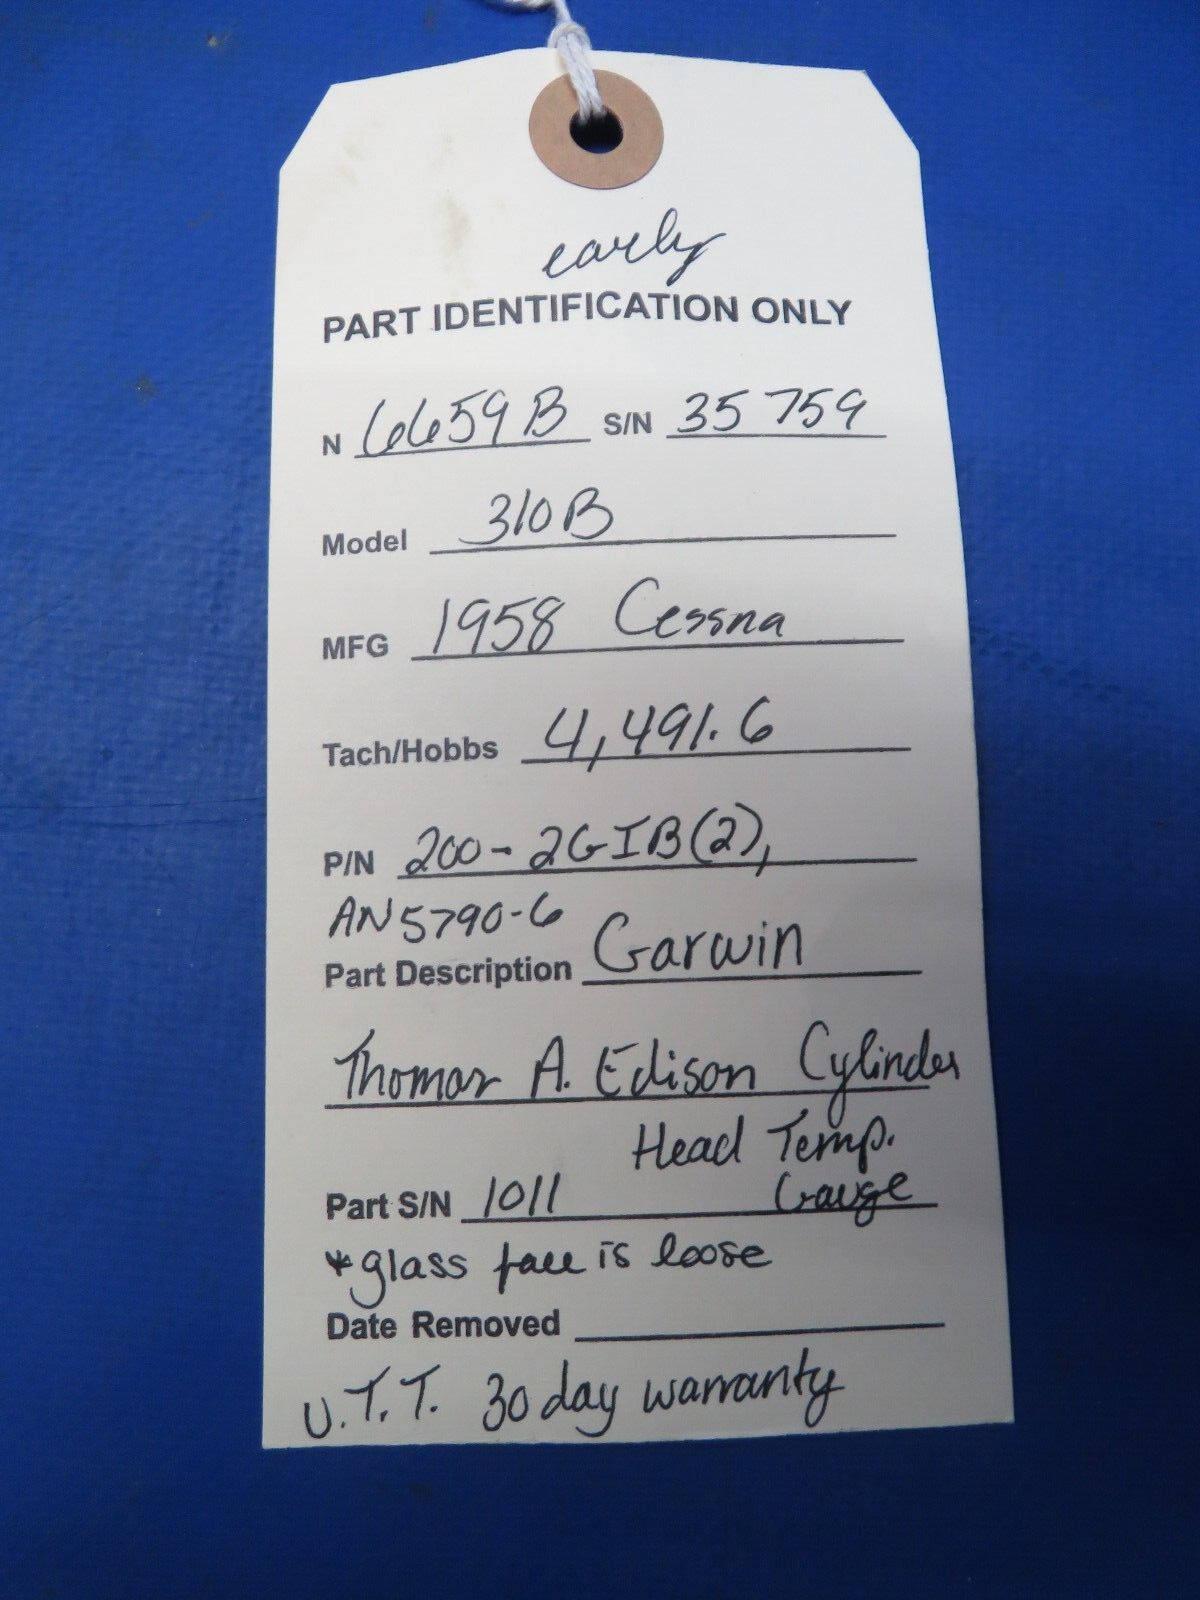 early
PART IDENTIFICATION ONLY
N 6659B S/N 35759
Model 310B
MFG 1958 Cessna
Tach/Hobbs 4,491.6
P/N 200-2GIB(2),
AN5790-6
Part Description Garwin
Thomas A. Edison Cylinder
Head Temp.
Part S/N 1011 Gauge
*glass face is loose
Date Removed
U.T.T. 30 day warranty